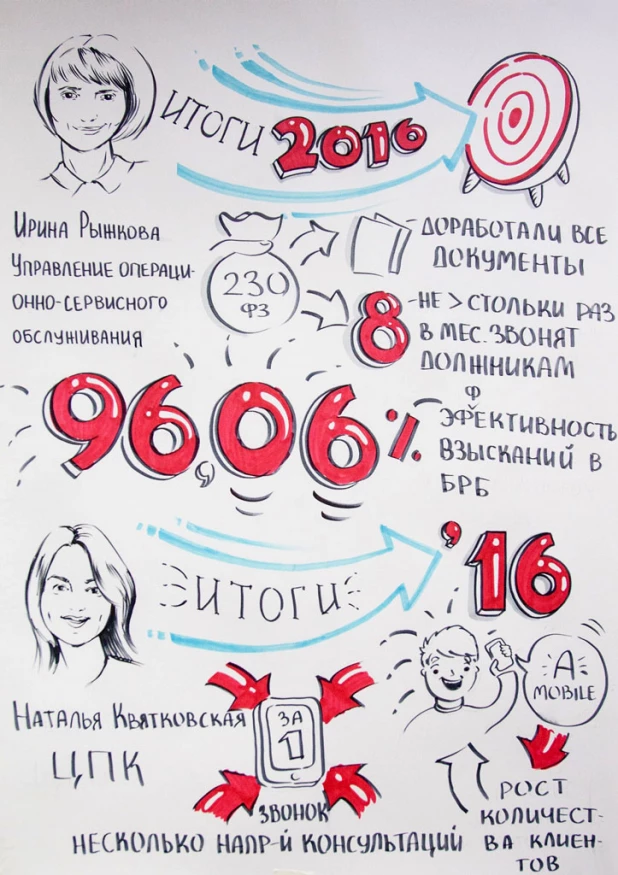 ИТОГИ 2016
Ирина Рыжкова
Управление операци-
онно-сервисного
обслуживания
230
ФЗ
-ДОРАБОТАЛИ ВСЕ
ДОКУМЕНТЫ
8 -НЕ > СТОЛЬКИ РАЗ
В МЕС. ЗВОНЯТ
ДОЛЖНИКАМ
96,06%
Ф
ЭФЕКТИВНОСТЬ
ВЗЫСКАНИЙ В
БРБ
ИТОГИ '16
Наталья Квятковская
ЦПК
ЗА
1
ЗВОНОК
НЕСКОЛЬКО НАПР-Й КОНСУЛЬТАЦИЙ
А-
MOBILE
РОСТ
КОЛИЧЕСТ-
ВА КЛИЕН-
ТОВ